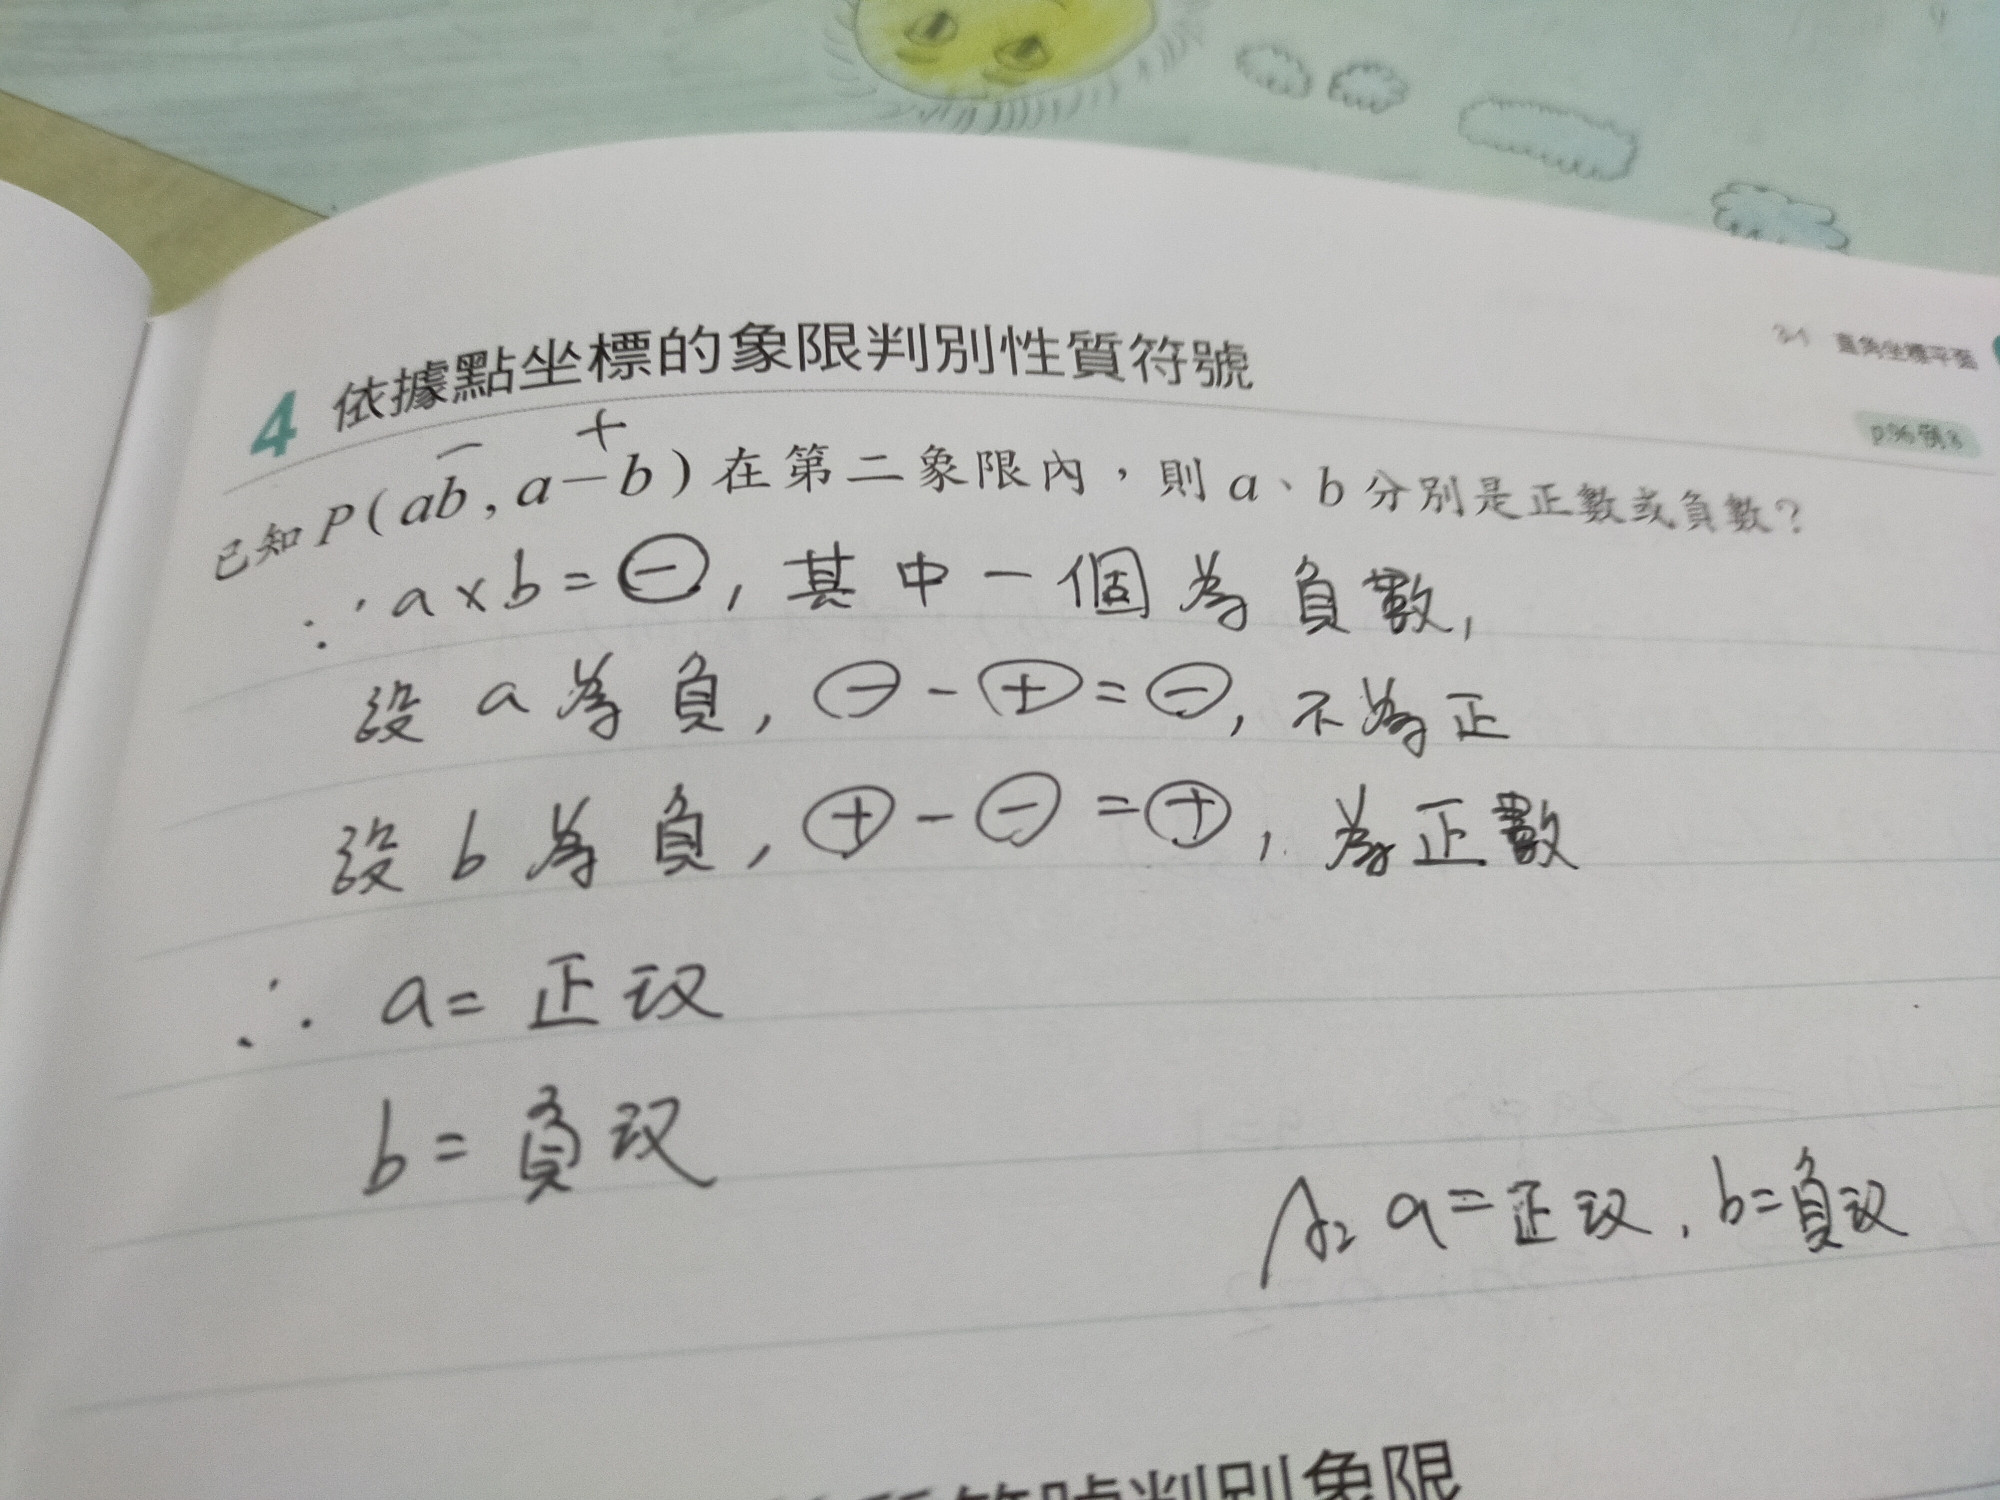 3-1 直角坐標平面
4 依據點坐標的象限判別性質符號
p.96例3
− +
已知 P(ab, a−b) 在第二象限內，則 a、b 分別是正數或負數？
∵ a×b=⊖, 其中一個為負數,
設 a 為負, ⊖-⊕=⊖, 不為正
設 b 為負, ⊕-⊖=⊕, 為正數
∴ a= 正
b= 負
a=正, b=負
符號判別象限